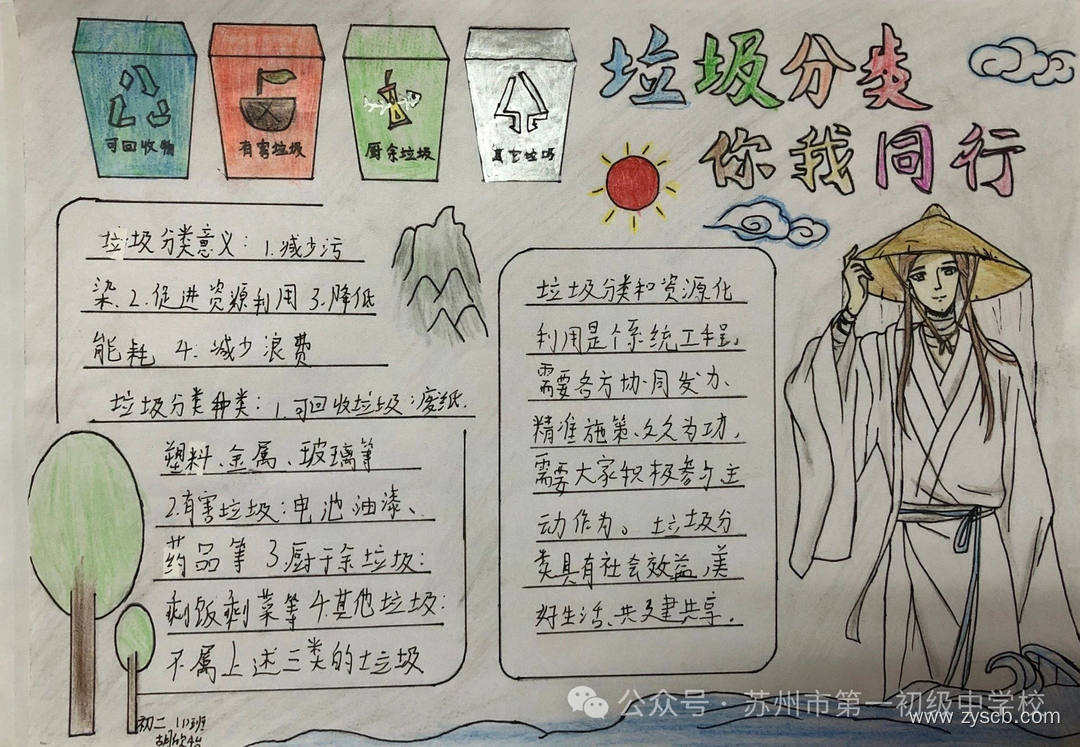 可回收物
有害垃圾
厨余垃圾
其它垃圾
垃圾分类
你我同行
垃圾分类意义：1.减少污
染、2.促进资源利用 3.降低
能耗 4.减少浪费
垃圾分类种类：1.可回收垃圾：废纸.
塑料、金属、玻璃等
2.有害垃圾：电池油漆、
药品等 3.厨于余垃圾：
剩饭剩菜等4.其他垃圾：
不属上述三类的垃圾
垃圾分类和资源化
利用是个系统工程，
需要各方协同发力、
精准施策、久久为功，
需要大家积极参与主
动作为。垃圾分
类具有社会效益，美
好生活、共建共享.
初二(1)班
公众号·苏州市第一初级中学校
www.zyscb.com